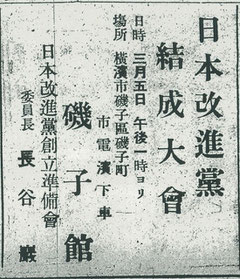 日本改進黨
結成大會
日時 三月五日 午後一時ヨリ
場所 橫濱市磯子區磯子町
市電濱下車
磯子館
日本改進黨創立準備會
委員長 長谷 巖